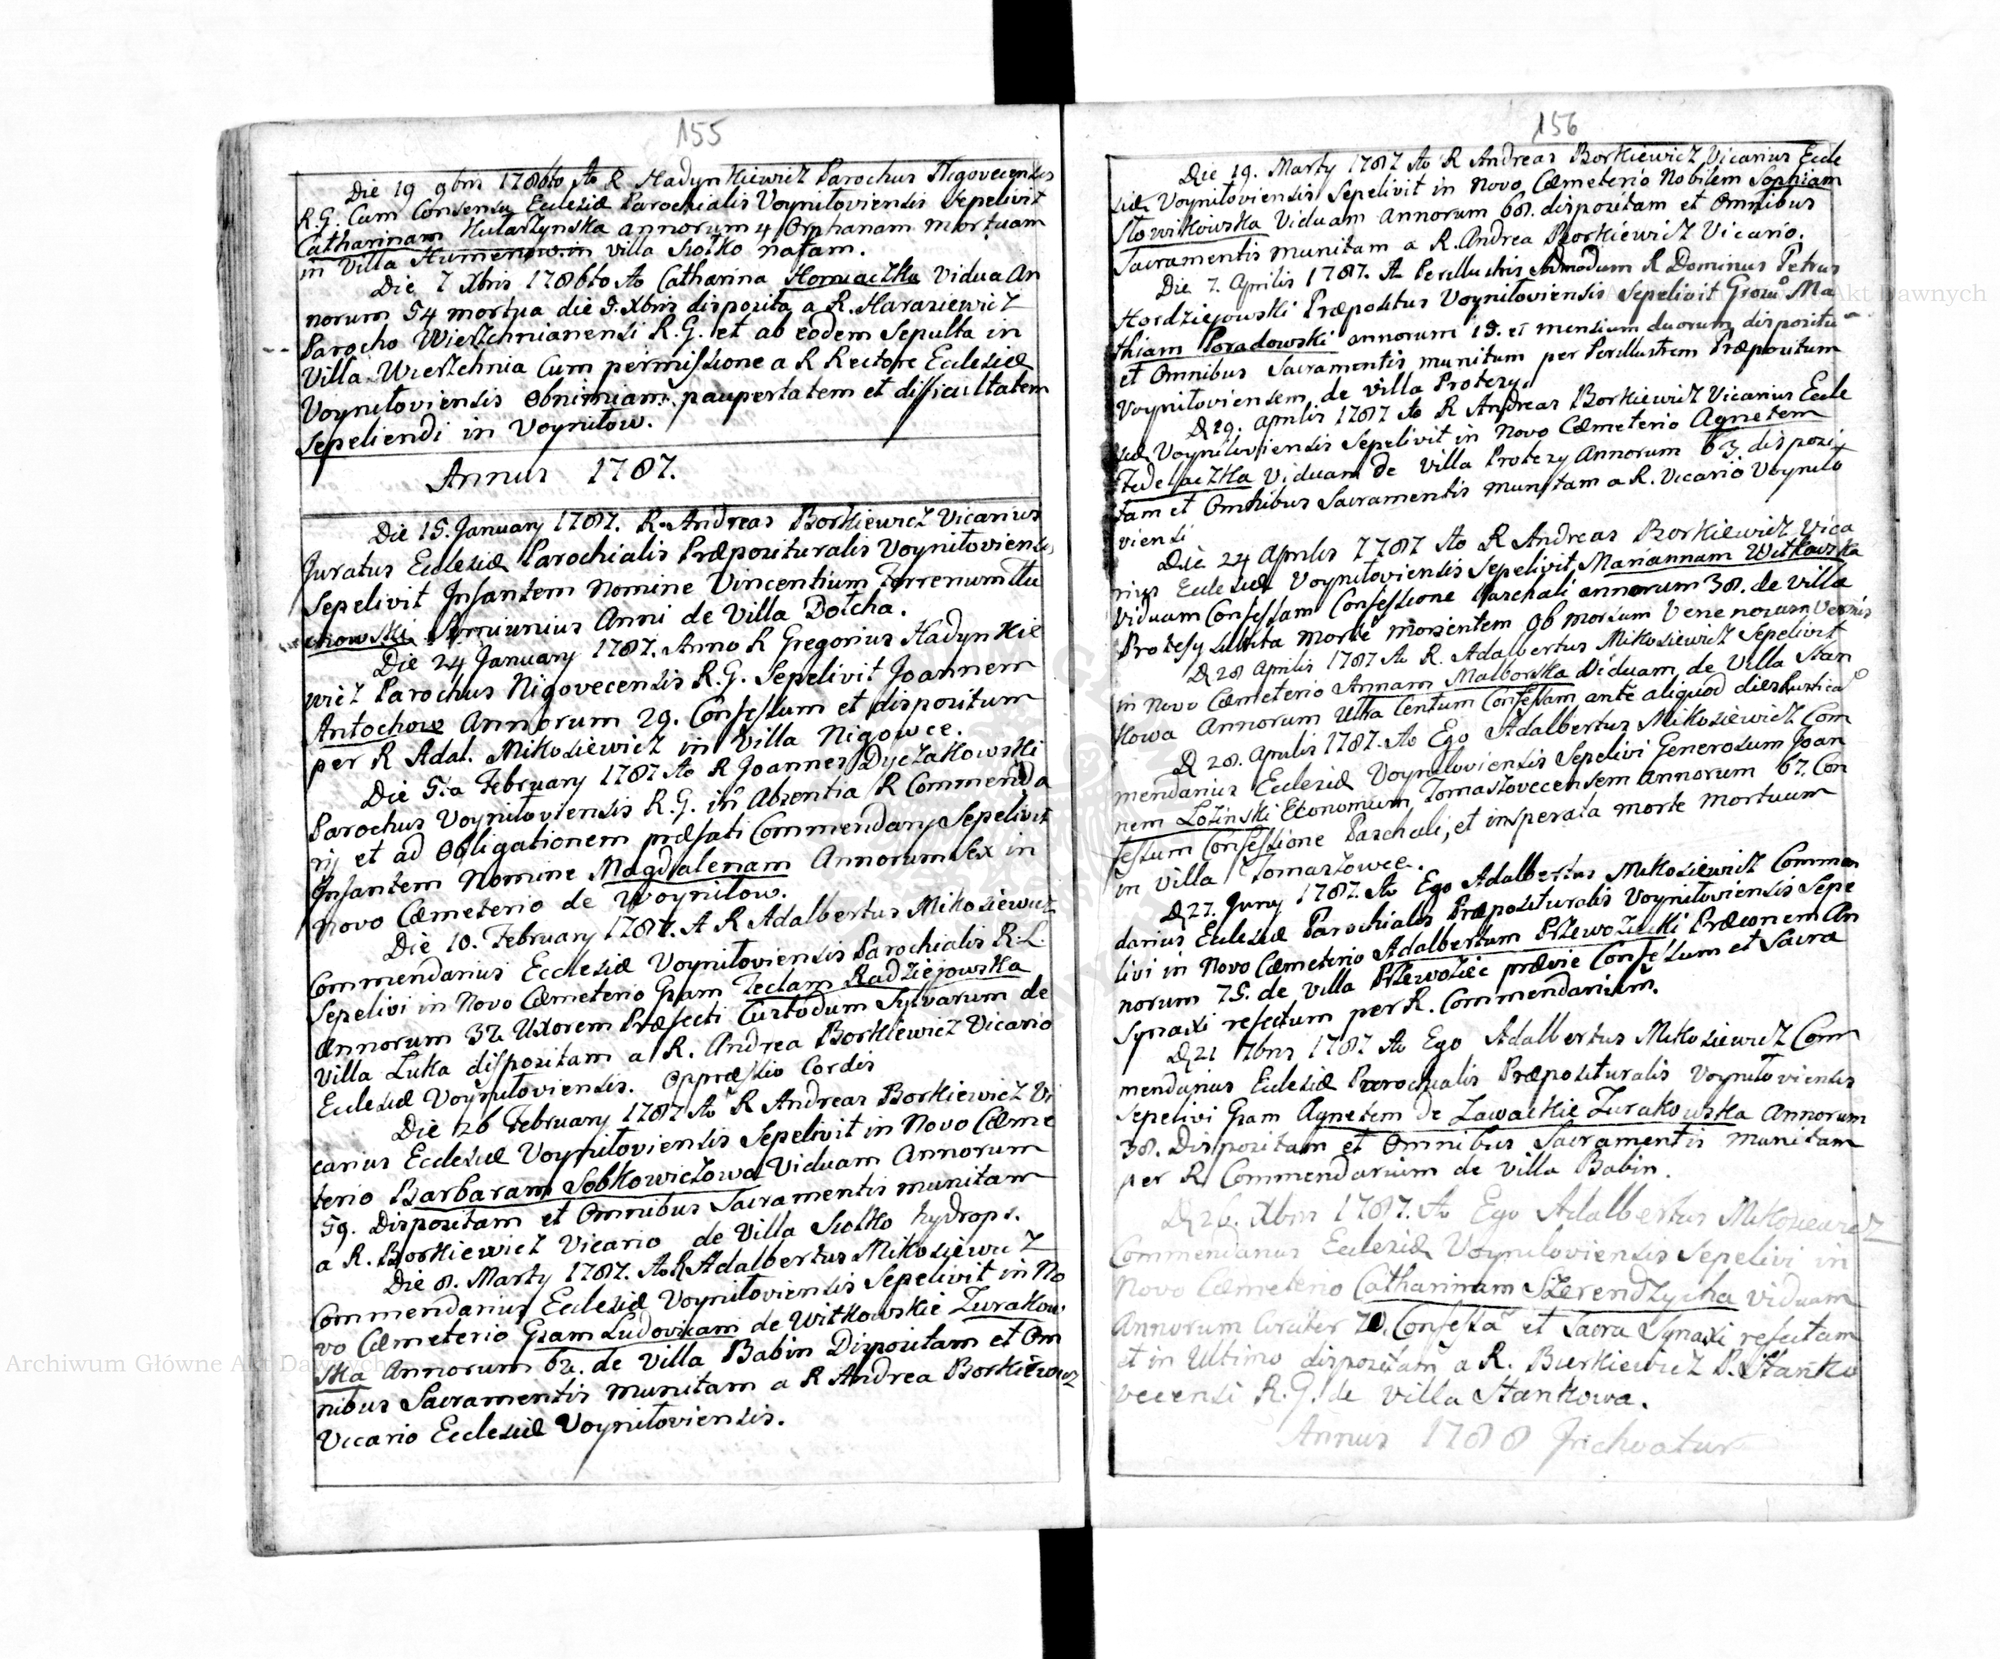 155
Die 19 9bris 1786to Ao R Hadynkiewicz Parochus Nigovecensis
R.G. Cum Consensu Ecclesiæ Parochialis Voyniloviensis Sepelivit
Catharinam annorum 4 Orphanam mortuam
in Villa Humenow in villa Siołko natam.
Die 7 Xbris 1786to Ao Catharina Homiaczka Vidua An
norum 54 mortua die 5. Xbris disposita a R. Harasiewicz
Parocho Wierzchnianensi R.G. et ab eodem Sepulta in
Villa Wierzchnia Cum permissione a R Rectore Ecclesiæ
Voyniloviensis Obnimiam paupertatem et difficultatem
Sepeliendi in Voyniłow.
Annus 1787.
Die 15. January 1787. R. Andreas Borkiewicz Vicarius
Juratus Ecclesiæ Parochialis Præposituralis Voyniloviensis
Sepelivit Infantem Nomine Vincentium
chowski Anni de Villa Dołcha.
Die 24 January 1787. Anno R Gregorius Hadynkie
wicz Parochus Nigovecensis R.G. Sepelivit Joannem
Antochow Annorum 29. Confessum et dispositum
per R Adal. Mikosiewicz in Villa Nigowce.
Die 5ta February 1787 Ao R Joannes Dyczakowski
Parochus Voyniloviensis R.G. in Absentia R Commenda
rij et ad Obligationem præfati Commendarij Sepelivit
Infantem Nomine Magdalenam Annorum Sex in
novo Cæmeterio de Woynilow.
Die 10. February 1787. A R Adalbertus Mikosiewicz
Commendarius Ecclesiæ Voyniloviensis Parochialis R.L.
Sepelivi in Novo Cæmeterio Gsam Teclam Radziejowska
Annorum 32 Uxorem Præfecti Custodum Sylvarum de
Villa Łuka dispositam a R. Andrea Borkiewicz Vicario
Ecclesiæ Voyniloviensis. Oppræssio Cordis
Die 26 February 1787 Ao R Andreas Borkiewicz Vi
carius Ecclesiæ Voyniloviensis Sepelivit in Novo Cæme
terio Barbaram Sobkowiczowa Viduam Annorum
59. Dispositam et Omnibus Sacramentis munitam
a R. Borkiewicz Vicario de Villa Siołko hydrops.
Die 8. Marty 1787. Ao R Adalbertus Mikosiewicz
Commendarius Ecclesiæ Voyniloviensis Sepelivit in No
vo Cæmeterio Gsam Ludovicam de Witkowskie Zurakow
ska Annorum 62. de Villa Babin Dispositam et Om
nibus Sacramentis munitam a R Andrea Borkiewicz
Vicario Ecclesiæ Voyniloviensis.
156
Die 19. Marty 1787 Ao R Andreas Borkiewicz Vicarius Eccle
siæ Voyniloviensis Sepelivit in Novo Cæmeterio Nobilem Sophiam
Słowikowska Viduam Annorum 68. dispositam et Omnibus
Sacramentis munitam a R. Andrea Borkiewicz Vicario.
Die 7. Aprilis 1787. Ao Perillustris Admodum R Dominus Petrus
Hordziejowski Præpositus Voyniloviensis Sepelivit Grosum Ma
thiam Poradowski annorum 15. et mensium duorum dispositu
et Omnibus Sacramentis munitum per Perillustrem Præpositum
Voyniloviensem de villa Protezy.
D 19. aprilis 1787 Ao R Andreas Borkiewicz Vicarius Eccle
siæ Voyniloviensis Sepelivit in Novo Cæmeterio Agnetem
Fedejaczka Viduam de villa Protezy Annorum 63 disposi
tam et Omnibus Sacramentis munitam a R. Vicario Voynilo
viensi
Die 24 Aprilis 1787 Ao R Andreas Borkiewicz Vica
rius Ecclesiæ Voyniloviensis Sepelivit Mariannam Witkowska
Viduam Confessam Confessione Paschali annorum 38. de villa
Protesy subita morte morientem ob morsum Venenosum Vermis
D 28 Aprilis 1787 Ao R. Adalbertus Mikosiewicz Sepelivit
in Novo Cæmeterio Annam Malborska Viduam de Villa Stan
kowa Annorum Ultra Centum Confessam ante aliquod dies
D 28. Aprilis 1787. Ao Ego Adalbertus Mikosiewicz Com
mendarius Ecclesiæ Voyniloviensis Sepelivi Generosum Joan
nem Łosinski Economum Tomaszovecensem Annorum 67. Con
fessum Confessione Paschali, et insperata morte mortuum
in villa Tomaszowce.
D 27. Juny 1787. Ao Ego Adalbertus Mikosiewicz Commen
darius Ecclesiæ Parochialis Præposituralis Voyniloviensis Sepe
livi in Novo Cæmeterio Adalbertum Przewozniki Præconem An
norum 75. de villa Przewoziec prævie Confessum et Sacra
Synaxi refectum per R. Commendarium.
D 21 7bris 1787 Ao Ego Adalbertus Mikosiewicz Com
mendarius Ecclesiæ Parrochialis Præposituralis Voyniloviensis
Sepelivi Gsam Agnetem de Zawackie Zurakowska Annorum
38. Dispositam et Omnibus Sacramentis munitam
per R Commendarium de Villa Babin.
D 26. Xbris 1787. Ao Ego Adalbertus Mikosiewicz
Commendarius Ecclesiæ Voyniloviensis Sepelivi in
Novo Cæmeterio Catharinam Szerendzycha viduam
Annorum Circiter 70. Confessa et Sacra Synaxi refectam
et in Ultimo dispositam a R. Burkiewicz P. Stanko
vecensi R.G. de Villa Stankowa.
Annus 1788 Inchoatur
Archiwum Główne Akt Dawnych
Archiwum Główne Akt Dawnych